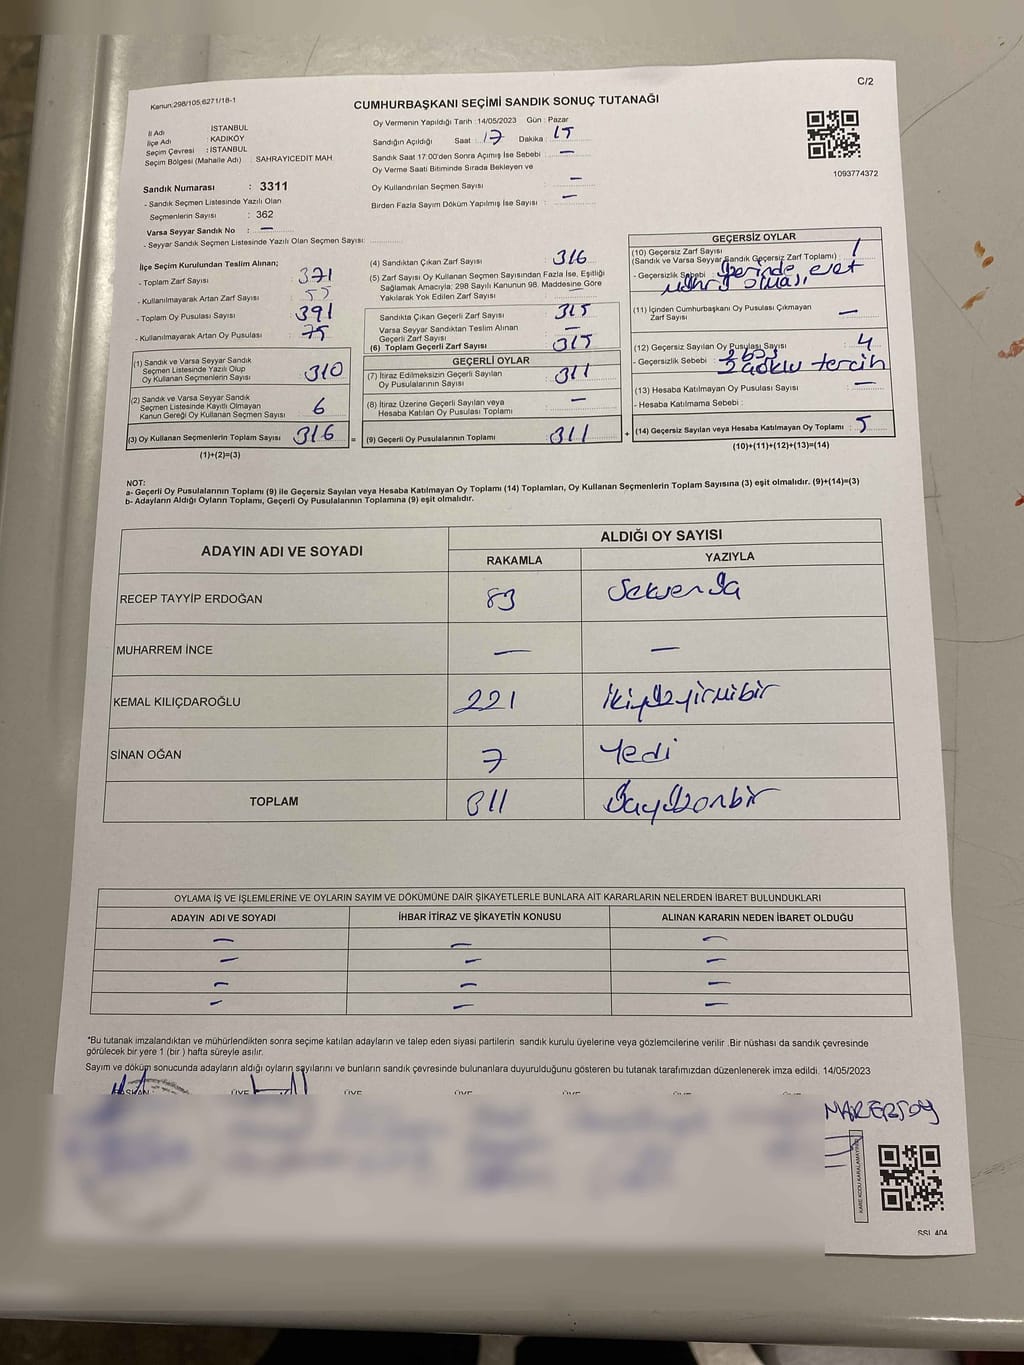 C/2
Kanun:298/105,6271/18-1
CUMHURBAŞKANI SEÇİMİ SANDIK SONUÇ TUTANAĞI
İl Adı İSTANBUL
İlçe Adı : KADIKÖY
Seçim Çevresi : İSTANBUL
Seçim Bölgesi (Mahalle Adı) : SAHRAYICEDIT MAH
Sandık Numarası : 3311
- Sandık Seçmen Listesinde Yazılı Olan
Seçmenlerin Sayısı : 362
Varsa Seyyar Sandık No : —
- Seyyar Sandık Seçmen Listesinde Yazılı Olan Seçmen Sayısı:
Oy Vermenin Yapıldığı Tarih : 14/05/2023 Gün : Pazar
Sandığın Açıldığı Saat : 17 Dakika : 15
Sandık Saat 17:00'den Sonra Açımış İse Sebebi : —
Oy Verme Saati Bitiminde Sırada Bekleyen ve
Oy Kullandırılan Seçmen Sayısı : —
Birden Fazla Sayım Döküm Yapılmış İse Sayısı : —
1093774372
İlçe Seçim Kurulundan Teslim Alınan;
- Toplam Zarf Sayısı : 371
- Kullanılmayarak Artan Zarf Sayısı : 55
- Toplam Oy Pusulası Sayısı : 391
- Kullanılmayarak Artan Oy Pusulası : 75
(1) Sandık ve Varsa Seyyar Sandık
Seçmen Listesinde Yazılı Olup
Oy Kullanan Seçmenlerin Sayısı : 310
(2) Sandık ve Varsa Seyyar Sandık
Seçmen Listesinde Kayıtlı Olmayan
Kanun Gereği Oy Kullanan Seçmen Sayısı : 6
(3) Oy Kullanan Seçmenlerin Toplam Sayısı : 316
(1)+(2)=(3)
=
(4) Sandıktan Çıkan Zarf Sayısı : 316
(5) Zarf Sayısı Oy Kullanan Seçmen Sayısından Fazla İse, Eşitliği
Sağlamak Amacıyla; 298 Sayılı Kanunun 98. Maddesine Göre
Yakılarak Yok Edilen Zarf Sayısı : —
Sandıkta Çıkan Geçerli Zarf Sayısı : 315
Varsa Seyyar Sandıktan Teslim Alınan
Geçerli Zarf Sayısı : —
(6) Toplam Geçerli Zarf Sayısı : 315
GEÇERLİ OYLAR
(7) İtiraz Edilmeksizin Geçerli Sayılan
Oy Pusulalarının Sayısı : 311
(8) İtiraz Üzerine Geçerli Sayılan veya
Hesaba Katılan Oy Pusulası Toplamı : —
(9) Geçerli Oy Pusulalarının Toplamı : 311
+
GEÇERSİZ OYLAR
(10) Geçersiz Zarf Sayısı
(Sandık ve Varsa Seyyar Sandık Geçersiz Zarf Toplamı) : 1
- Geçersizlik Sebebi : Üzerinde evet
mührü olması
(11) İçinden Cumhurbaşkanı Oy Pusulası Çıkmayan
Zarf Sayısı : —
(12) Geçersiz Sayılan Oy Pusulası Sayısı : 4
- Geçersizlik Sebebi : 2 boş
2 çoklu tercih
(13) Hesaba Katılmayan Oy Pusulası Sayısı : —
- Hesaba Katılmama Sebebi :
(14) Geçersiz Sayılan veya Hesaba Katılmayan Oy Toplamı : 5
(10)+(11)+(12)+(13)=(14)
NOT:
a- Geçerli Oy Pusulalarının Toplamı (9) ile Geçersiz Sayılan veya Hesaba Katılmayan Oy Toplamı (14) Toplamları, Oy Kullanan Seçmenlerin Toplam Sayısına (3) eşit olmalıdır. (9)+(14)=(3)
b- Adayların Aldığı Oyların Toplamı, Geçerli Oy Pusulalarının Toplamına (9) eşit olmalıdır.
ADAYIN ADI VE SOYADI ALDIĞI OY SAYISI
RAKAMLA YAZIYLA
RECEP TAYYİP ERDOĞAN 83 Seksenüç
MUHARREM İNCE — —
KEMAL KILIÇDAROĞLU 221 İkiyüzyirmibir
SİNAN OĞAN 7 Yedi
TOPLAM 311 Üçyüzonbir
OYLAMA İŞ VE İŞLEMLERİNE VE OYLARIN SAYIM VE DÖKÜMÜNE DAİR ŞİKAYETLERLE BUNLARA AİT KARARLARIN NELERDEN İBARET BULUNDUKLARI
ADAYIN ADI VE SOYADI İHBAR İTİRAZ VE ŞİKAYETİN KONUSU ALINAN KARARIN NEDEN İBARET OLDUĞU
— — —
— — —
— — —
— — —
*Bu tutanak imzalandıktan ve mühürlendikten sonra seçime katılan adayların ve talep eden siyasi partilerin sandık kurulu üyelerine veya gözlemcilerine verilir .Bir nüshası da sandık çevresinde
görülecek bir yere 1 (bir ) hafta süreyle asılır.
Sayım ve döküm sonucunda adayların aldığı oyların sayılarını ve bunların sandık çevresinde bulunanlara duyurulduğunu gösteren bu tutanak tarafımızdan düzenlenerek imza edildi. 14/05/2023
BAŞKAN ÜYE ÜYE ÜYE ÜYE ÜYE
KARE KODU KARALAMAYINIZ